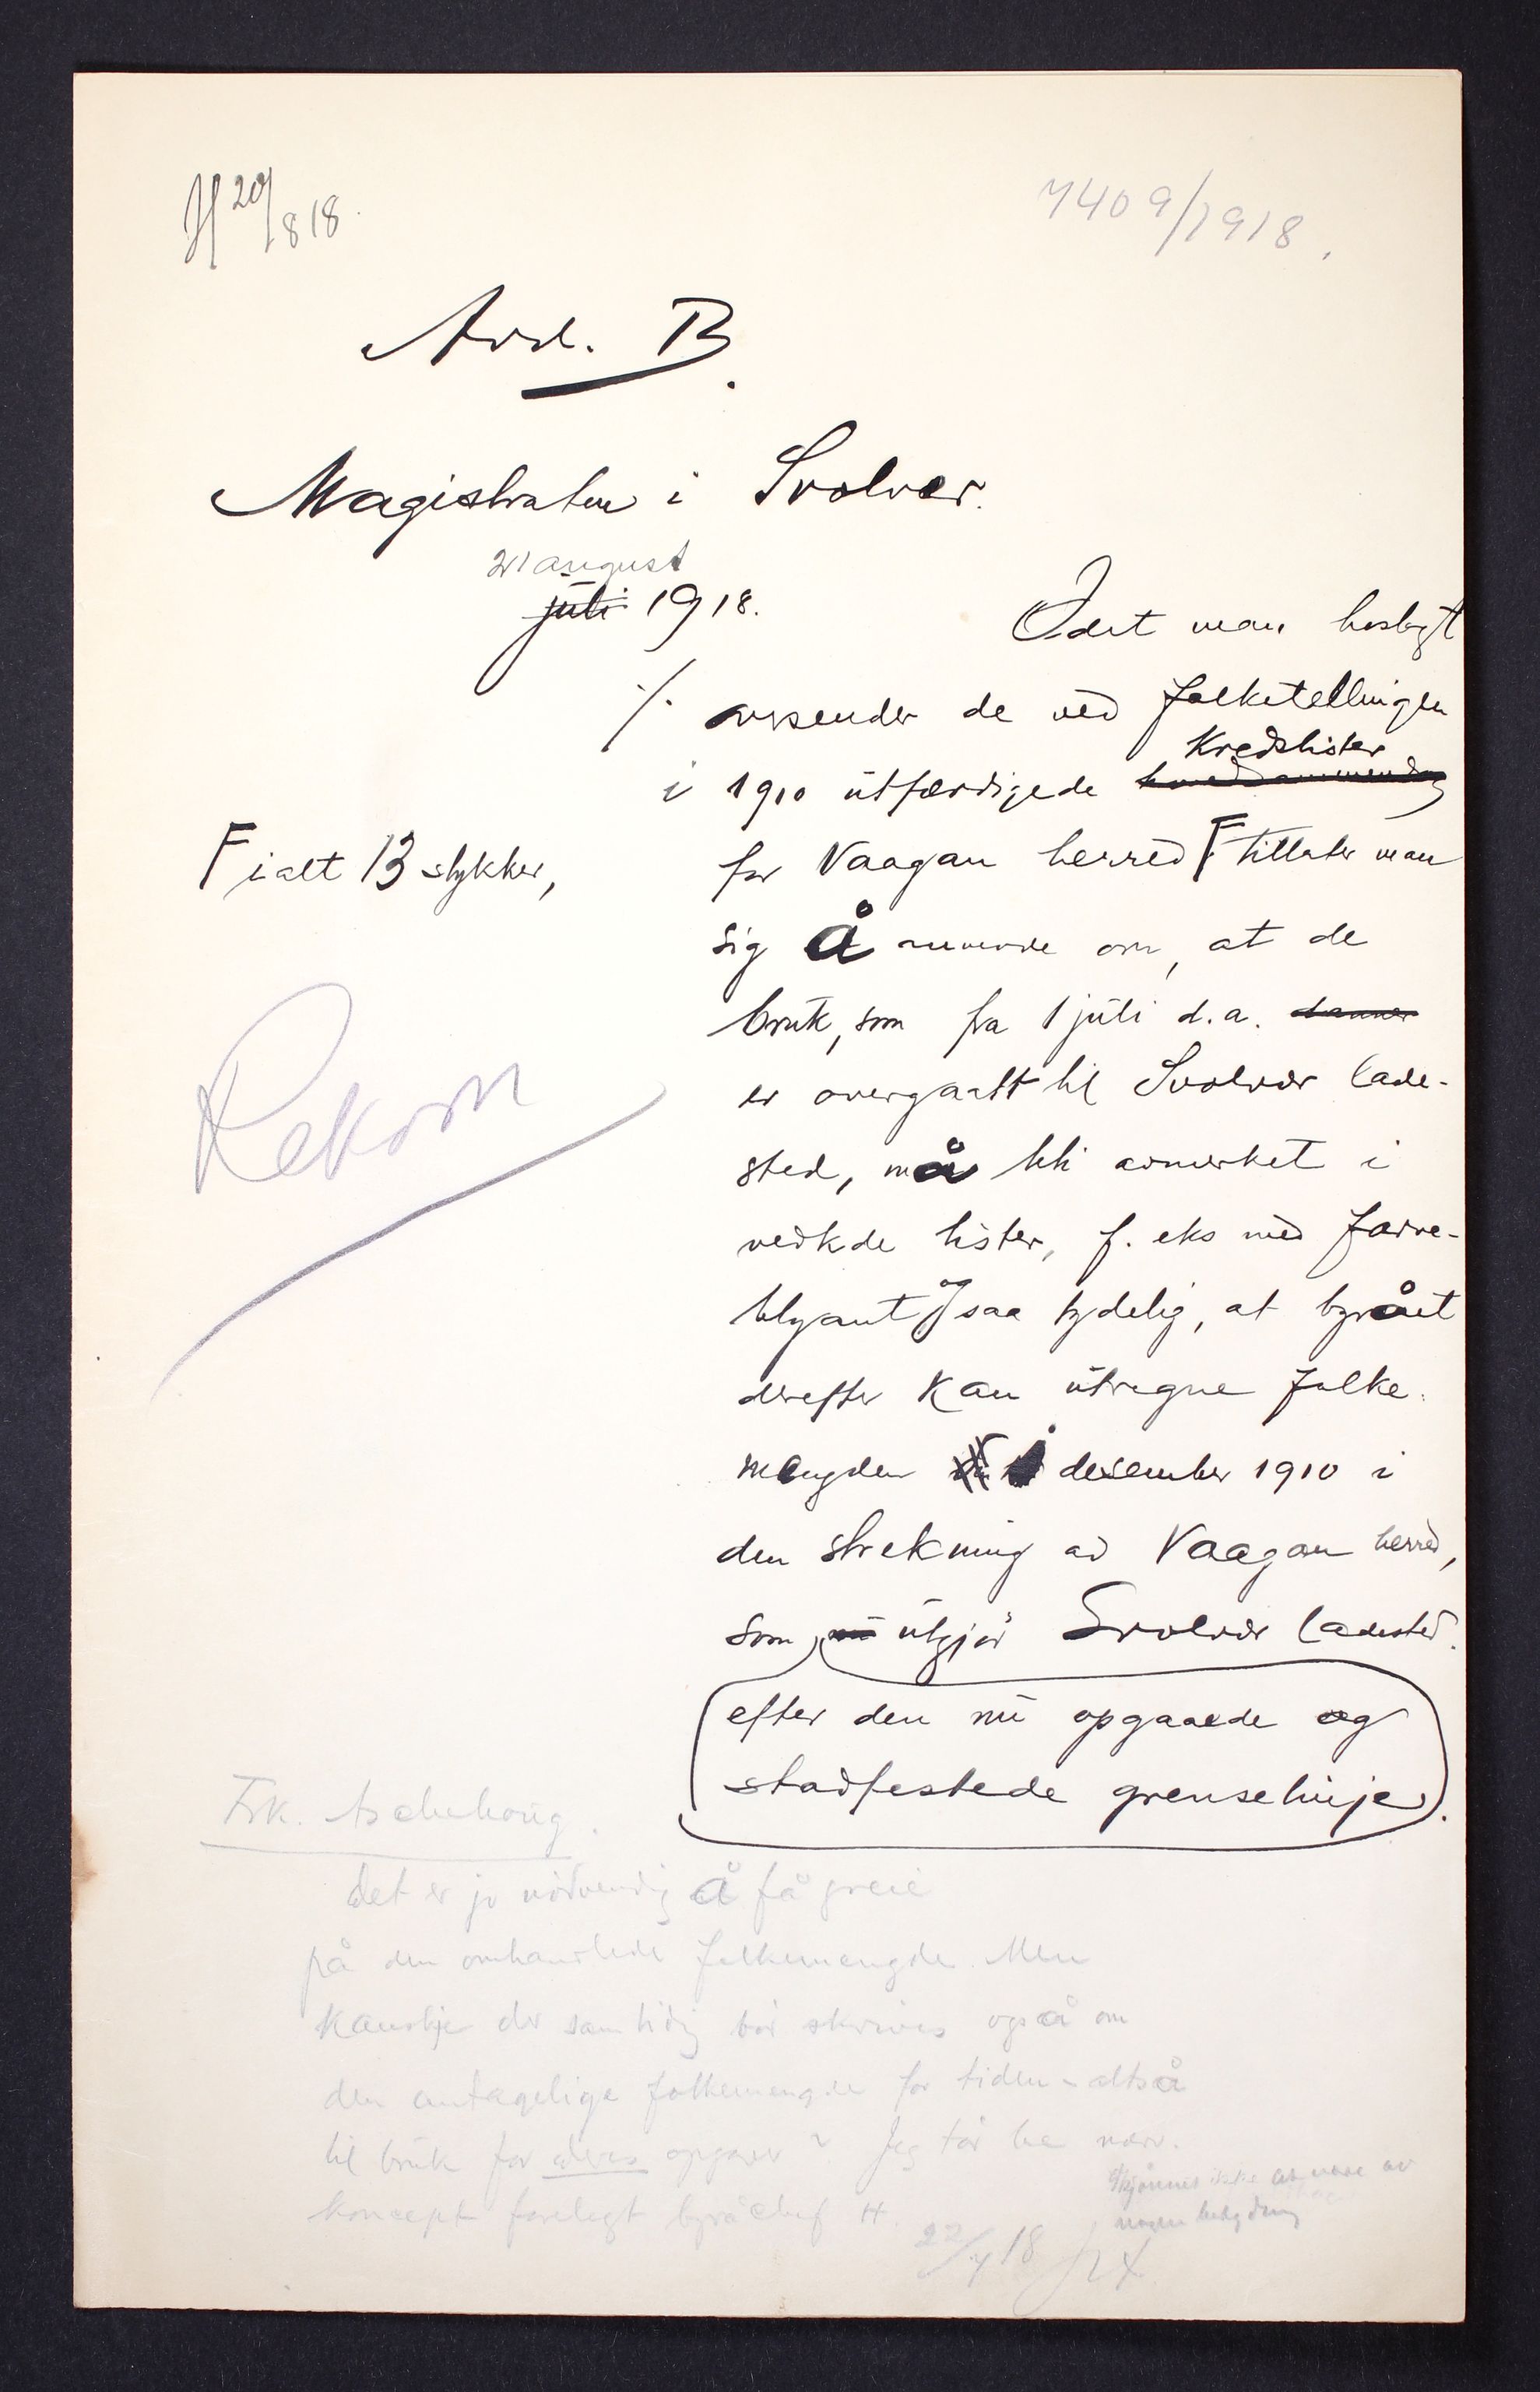 H 20/8 18.
7409/1918.
Avd. B.
Magistraten i Svolvær.
21 august
juli 1918.
Idet man hoslagt
./. oversender de ved folketellingen
Kredslister
i 1910 utfærdigede
for Vaagan herred F tillater man
F ialt 13 stykker,
sig å anmode om, at de
bruk, som fra 1 juli d.a. danner
er overgaatt til Svolvær lade-
sted, må bli avmerket i
vedkde lister, f. eks med farve-
blyant og saa tydelig, at byrået
derefter kan utregne folke-
mengden desember 1910 i
den strekning av Vaagan herred,
som nu utgjør Svolvær ladested.
efter den nu opgaaede og
stadfestede grenselinje.
Rekom
Frk. Aschehoug.
Det er jo nødvendig å få greie
på den omhandlede folkemengde. Men
kanskje der samtidig bør skrives også om
den antagelige folkemengde for tiden - altså
til bruk for deres opgaver? Jeg tør be
koncept forelegt byråchef H.
skjønnes ikke at være av
nogen betydning
22/7 18